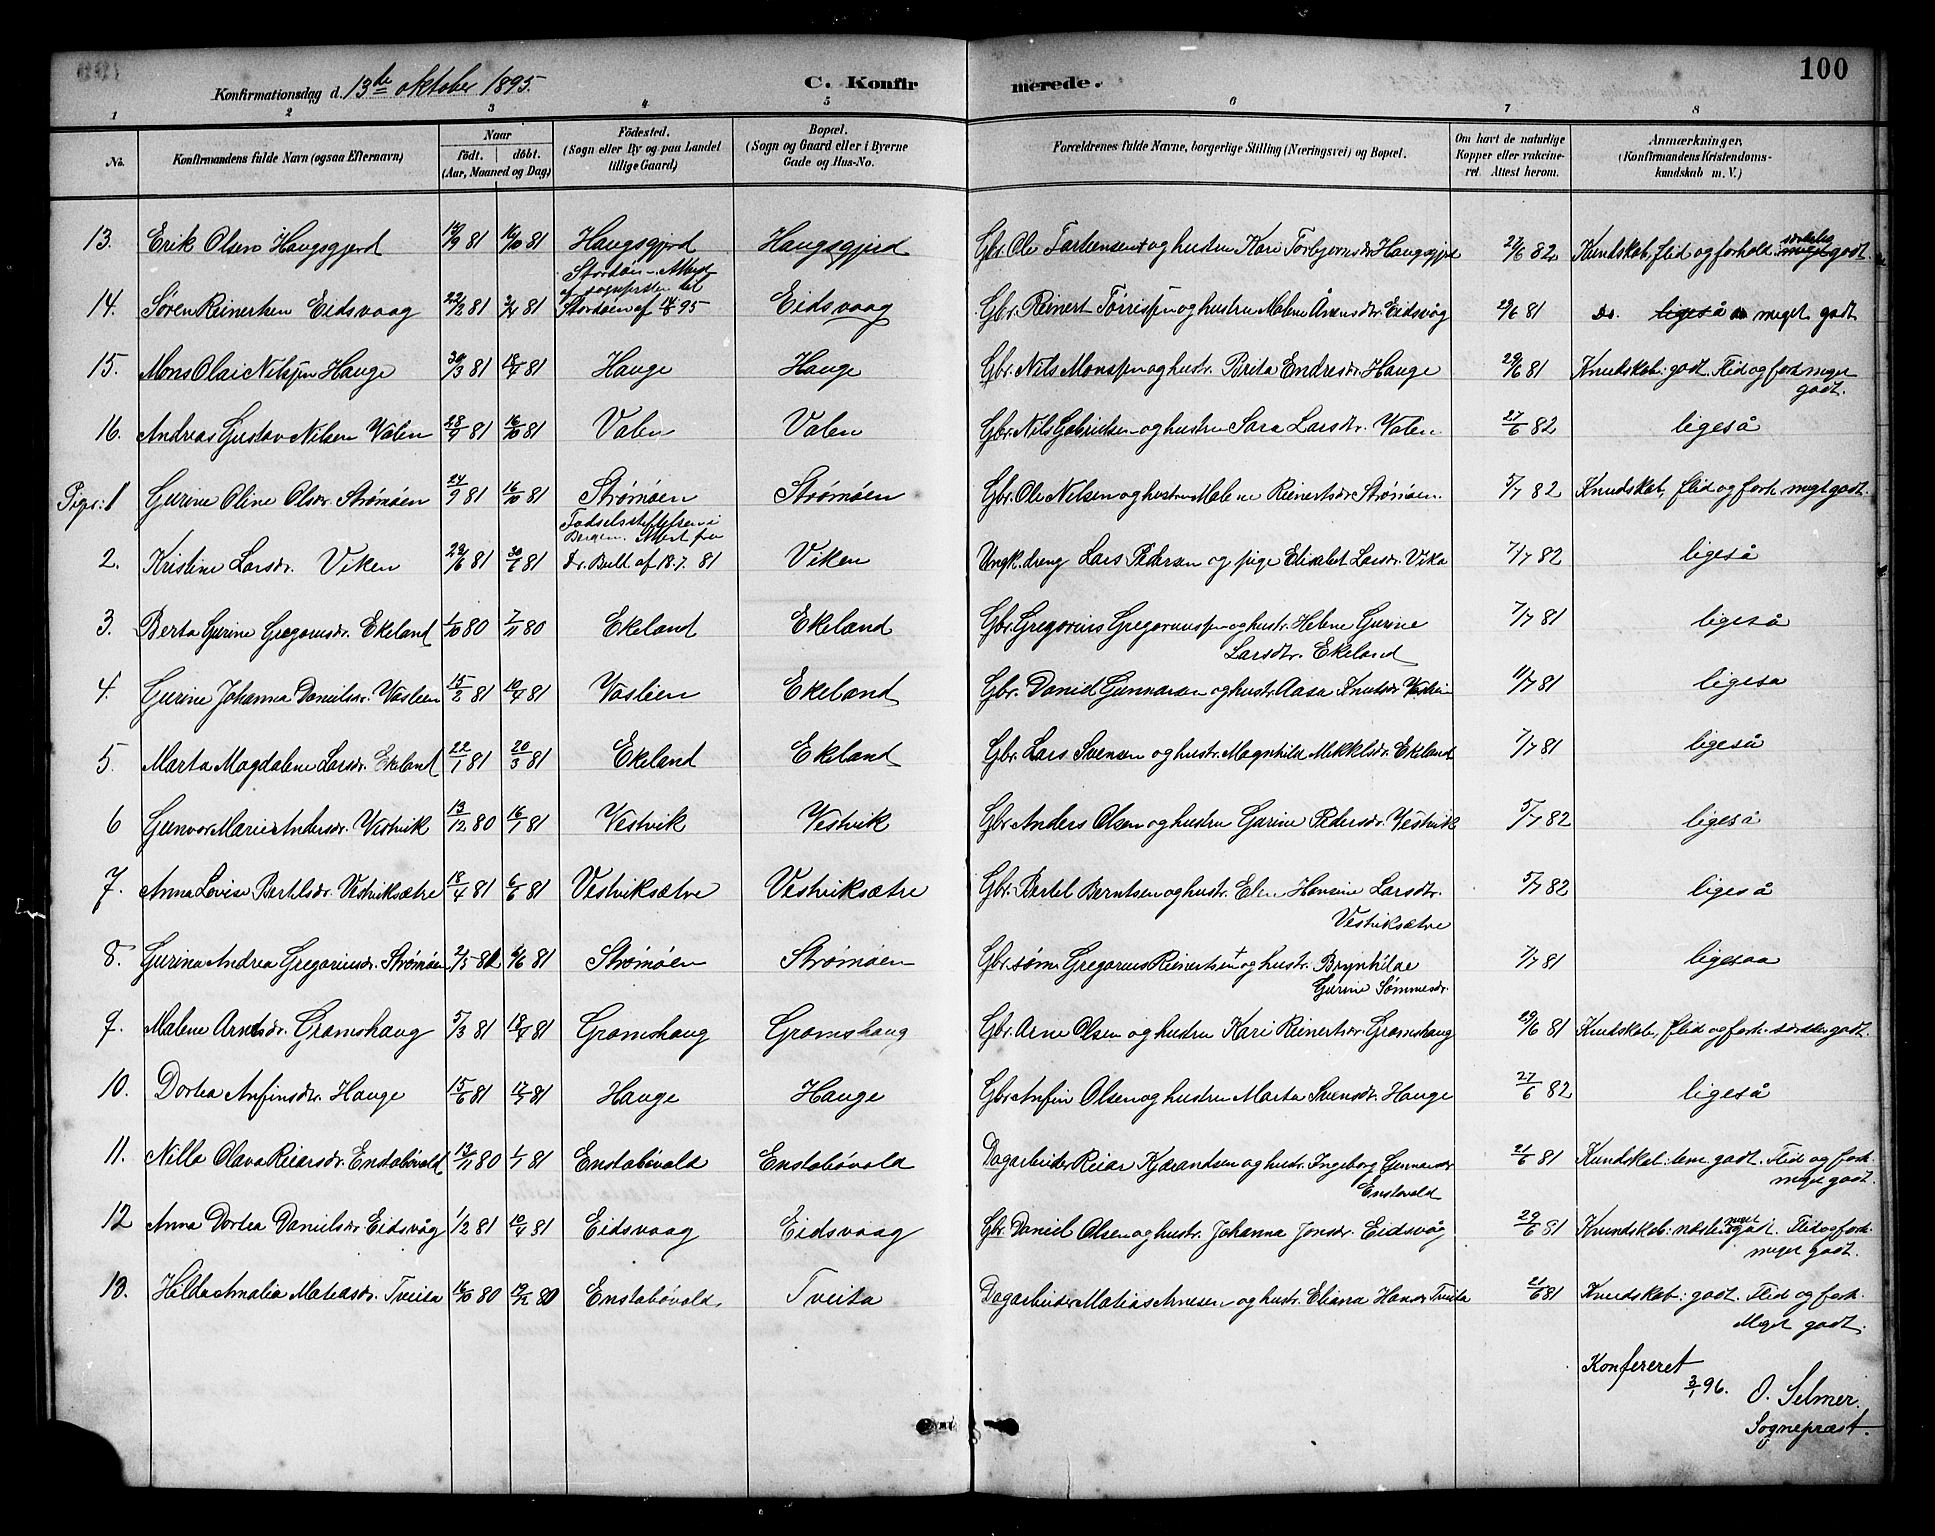 100
Konfirmationsdag d. 13de oktober 1895.
C. Konfirmerede.
1 2 3 4 5 6 7 8
No.
Konfirmandens fulde Navn (ogsaa Efternavn)
Naar
födt. döbt.
(Aar, Maaned og Dag)
Födested.
(Sogn eller By og paa Landet
tillige Gaard)
Bopæl.
(Sogn og Gaard eller i Byerne
Gade og Hus-No.
Forældrenes fulde Navne, borgerlige Stilling (Næringsvei) og Bopæl.
Om havt de naturlige
Kopper eller vakcine-
ret. Attest herom.
Anmærkninger.
(Konfirmandens Kristendoms-
kundskab m. V.)
13. Erik Olsen Haugsgjerd 81 16/10 81 Haugsgjerd Haugsgjerd Gbr. Ole og hustru Kari Torbjørnsdr Haugsgjerd 27/6 82 Kundskab, flid og forhold særdeles godt.
14. Søren Reinertsen Eidsvaag 22/2 81 81 Stordøen - Attest
af sognepresten til
Stordøen af 95 Eidsvaag Gbr. Reinert og hustru Malene Eidsvåg 29/6 81 Do. meget godt
15. Mons Olai Nilssen Hauge 30/3 81 18/4 81 Hauge Hauge Gbr. Nils Monssen og hustr. Brita Endresdr. Hauge 29/6 81 Kundskab: godt. Flid og forh. meget
godt.
16. Andreas Gustav Nilsen Valen 28/9 81 16/10 81 Valen Valen Gbr. Nils Gabrielsen og hustru Sara Larsdtr. Valen 27/6 82 ligeså
Piger: 1 Gurine Oline Olsdr. Strømøen 24/9 81 16/10 81 Strømøen Strømøen Gbr. Ole Nilsen og hustru Malene Reinertsdr Strømøen. 5/7 82 Kundskab, flid og forh. meget godt.
2. Kristine Larsdr. Viken 29/6 81 81 Fødselsstiftelsen i
Bergen. Attest fra
Dr. Bull af 18.7.81 Viken Ungk. dreng Lars Pedersen og pige Elisabet Larsdr. Vika 7/7 82 ligeså
3. Berta Gurine Gregoriusdr. Ekeland 1/10 80 7/11 80 Ekeland Ekeland Gbr. Gregorius Gregoriussen og hustr. Helene Gurine
Larsdtr. Ekeland 7/7 81 ligeså
4. Gurine Johanna Danielsdr. Vaslien 15/2 81 10/4 81 Vaslien Ekeland Gbr. Daniel Gunnarsen og hustr. Aasa Knutsdr 81 ligesa
5. Marta Magdalene Larsdr. Ekeland 22/1 81 20/3 81 Ekeland Ekeland Gbr. Lars Svensen og hustr. Magnhild Mikkelsdr. Ekeland 7/7 81 ligeså
6 Gunvor Marie Andersdr. Vestvik 13/12 80 16/1 81 Vestvik Vestvik Gbr. Anders Olsen og hustru Gurine Pedersdr. Vestvik 5/7 82 ligeså
7. Anna Lovise Bertelsdr. Vestviksætre 18/4 81 6/6 81 Vestviksætre Vestviksætre Gbr. Bertel Berntsen og hustr. Hansine Larsdtr.
Vestviksætre 5/7 82 ligeså
8. Gurina Andrea Gregoriusdr. Strømøen 2/5 81 6/6 81 Strømøen Strømøen Gbr. søn Gregorius Reinertsen † og hustr. Brynhilde
Gurine Sømmesdr. 7/7 81 ligesaa
9. Malene Arnesdr. Gramshaug 5/3 81 18/4 81 Gramshaug Gramshaug Gbr. Arne Olsen og hustru Kari Reinertsdr. Gramshaug 29/6 81 Kundskab, flid og forh. særdeles godt.
10. Dortea Anfinsdr. Hauge 15/6 81 17/7 81 Hauge Hauge Gbr. Anfin Olsen og hustru Marta Svensdr. Hauge 27/6 82 ligeså
11. Nilla Olava Reiarsdr. Enstabøvold 13/11 80 1/1 81 Enstabøvold Enstabøvold Dagarbeider Reiar Kjærandsen og hustr. Ingeborg Gunnarsdr
21/6 81 Kundskab: godt. Flid og forh.
meget godt.
12 Anna Dortea Danielsdr Eidsvåg 1/2 81 10/4 81 Eidsvaag Eidsvaag Gbr. Daniel Olsen og hustr. Johanna Jonsdr. Eidsvåg 29/6 81 Kundskab: næsten meget godt. Flid og forh.
meget godt.
13. Hilda Amalia Matiasdr. Tveita 16/10 80 19/12 80 Enstabøvold. Tveita Dagarbeider Matias Arnesen og hustr. Eliana Hansdr Tveita 21/6 81 Kundskab: godt. Flid og forh.
Meget godt.
Konfereret
3/1 96. O. Selmer.
Sognepræst.